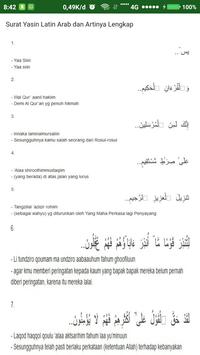 8:42
0,49K/d
4G
100%
Surat Yasin Latin Arab dan Artinya Lengkap
1.
يس ..
- Yaa Siiin
- Yaa siiin
2.
- Wal Qur' aanil hakiim
- Demi Al Qur'an yg penuh hikmah
3.
- Innaka laminalmursaliin
- Sesungguhnya kamu salah seorang dari Rosul-rosul
4.
- 'Alaa shiroothimmustaqiim
- (yang berada) di atas jalan yang lurus
5.
- Tangziilal 'aziizir rohiim
- (sebagai wahyu) yg diturunkan oleh Yang Maha Perkasa lagi Penyayang
6.
- Li tundziro qouman ma undziro aabaauhum fahum ghoofiluun
- agar kmu memberi peringatan kepada kaum yang bapak bapak mereka belum pernah
diberi peringatan, karena itu mereka lalai.
7.
- Laqod haqqol qoulu 'alaa aktsarihim fahum laa yu'minuun
- Sesungguhnya telah pasti berlaku perkataan (ketentuan Allah) terhadap kebanyakan